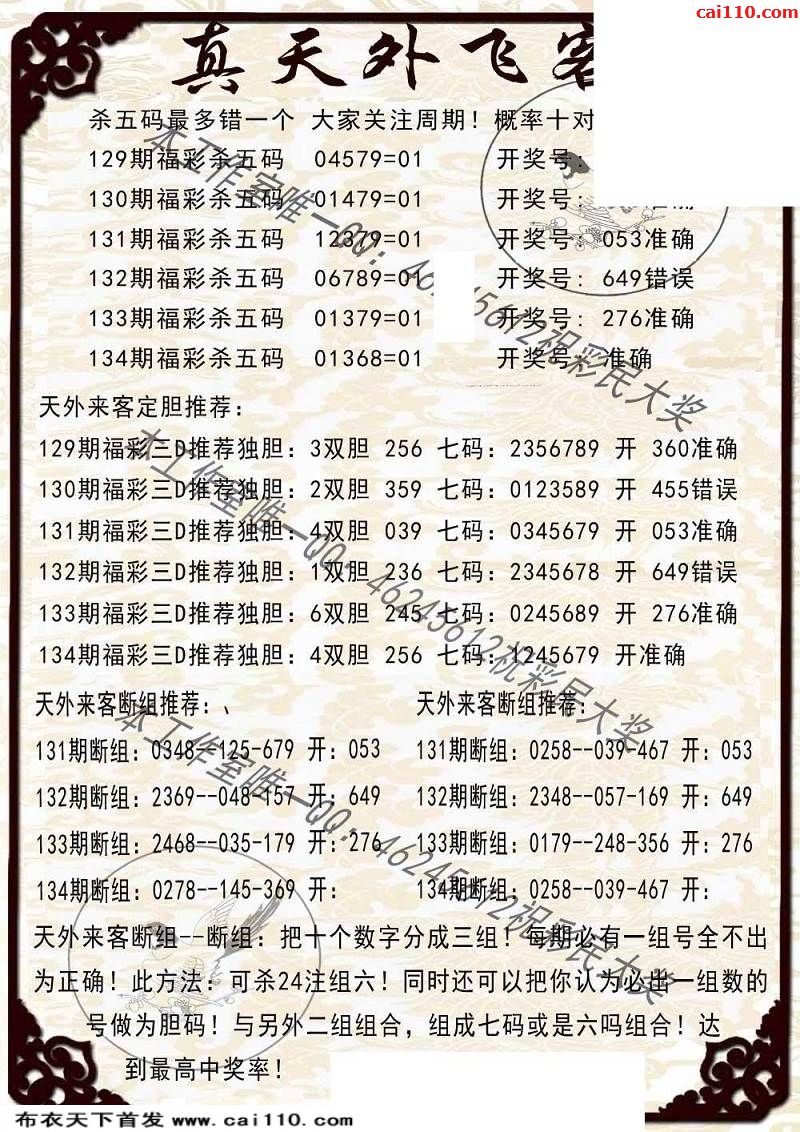 cai110.com
真天外飞客
杀五码最多错一个 大家关注周期！概率十对
129期福彩杀五码 04579=01 开奖号:
130期福彩杀五码 01479=01 开奖号: 准确
131期福彩杀五码 12379=01 开奖号: 053准确
132期福彩杀五码 06789=01 开奖号: 649错误
133期福彩杀五码 01379=01 开奖号: 276准确
134期福彩杀五码 01368=01 开奖号: 准确
天外来客定胆推荐:
129期福彩三D推荐独胆: 3双胆 256 七码: 2356789 开 360准确
130期福彩三D推荐独胆: 2双胆 359 七码: 0123589 开 455错误
131期福彩三D推荐独胆: 4双胆 039 七码: 0345679 开 053准确
132期福彩三D推荐独胆: 1双胆 236 七码: 2345678 开 649错误
133期福彩三D推荐独胆: 6双胆 245 七码: 0245689 开 276准确
134期福彩三D推荐独胆: 4双胆 256 七码: 1245679 开准确
天外来客断组推荐: 、 天外来客断组推荐:
131期断组: 0348--125-679 开: 053 131期断组: 0258--039-467 开: 053
132期断组: 2369--048-157 开: 649 132期断组: 2348--057-169 开: 649
133期断组: 2468--035-179 开: 276 133期断组: 0179--248-356 开: 276
134期断组: 0278--145-369 开: 134期断组: 0258--039-467 开:
天外来客断组--断组: 把十个数字分成三组！每期必有一组号全不出
为正确！此方法: 可杀24注组六！同时还可以把你认为必出一组数的
号做为胆码！与另外二组组合, 组成七码或是六吗组合！达
到最高中奖率！
本工作室唯一QQ: 46245612祝彩民大奖
本工作室唯一QQ: 46245612祝彩民大奖
本工作室唯一QQ: 46245612祝彩民大奖
布衣天下首发 www.cai110.com